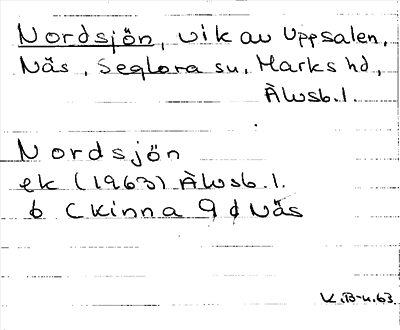 Nordsjön, vik av Uppsalen,
Näs, Seglora sn, Marks hd,
Älvsb.l.
Nordsjön
ek (1963) Älvsb.l.
6 C Kinna 9 d Näs
K.B-u.63.